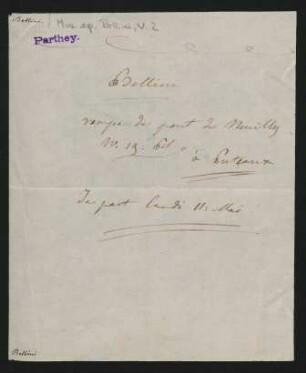 Bellini
Mus. ep. Bellini, V. 2
Parthey.
Bellini
rampe du pont de Neuilly
N. 19.
à Puteaux
Je part lundi 11. Mai
Bellini